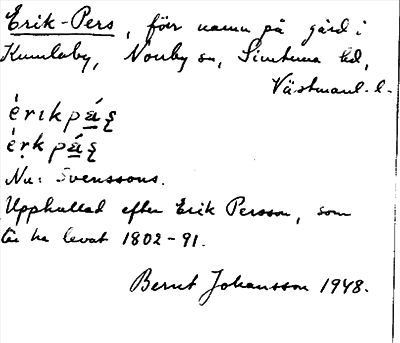 Erik-Pers, förr namn på gård i
Kumlaby, Nourby sn, Simtuna hd,
Västmanl. l.
érikpás
érkpás
Nu: Svenssons.
Uppkallad efter Erik Persson, som
ha levat 1802-91.
Bernt Johansson 1948.